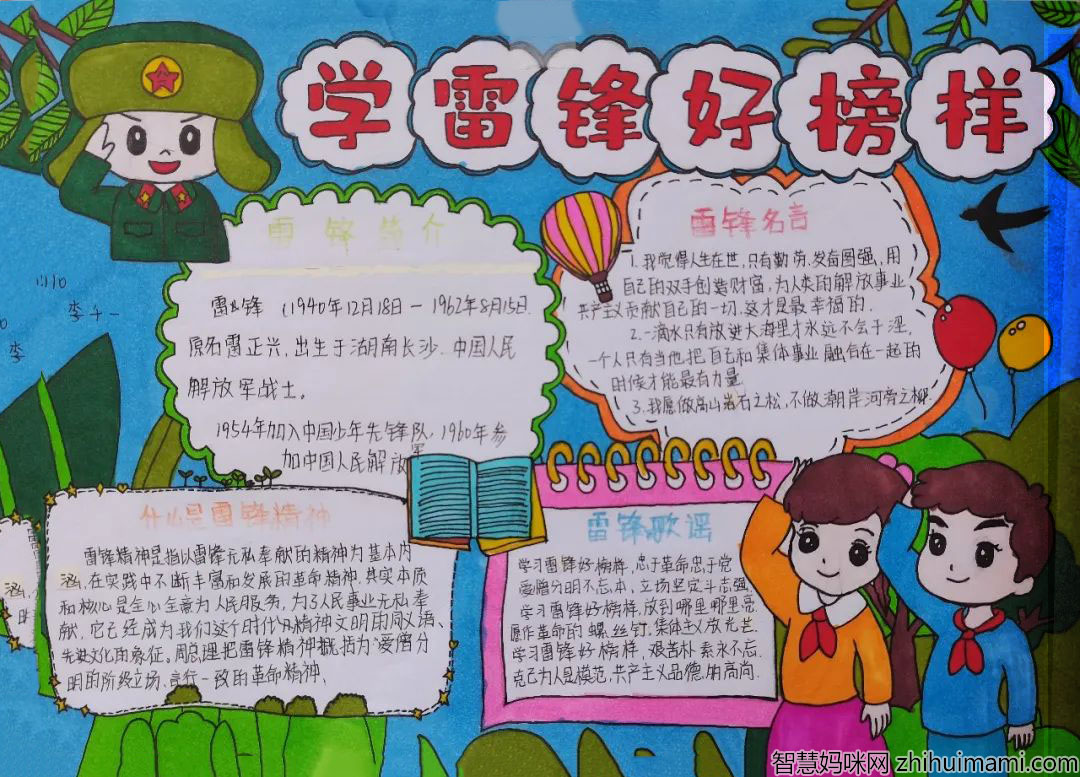 学雷锋好榜样
雷锋简介
雷锋 (1940年12月18日—1962年8月15日.
原名雷正兴，出生于湖南长沙.中国人民
解放军战士。
1954年加入中国少年先锋队，1960年参
加中国人民解放军
雷锋名言
1.我觉得人生在世,只有勤劳,发奋图强,用
自己的双手创造财富,为人类的解放事业
共产主义贡献自己的一切.这才是最幸福的.
2.一滴水只有放进大海里才永远不会干涸,
一个人只有当他把自己和集体事业融合在一起的
时候才能最有力量
3.我愿做高山岩石之松,不做湖岸河旁之柳.
什么是雷锋精神
雷锋精神是指以雷锋无私奉献的精神为基本内
涵,在实践中不断丰富和发展的革命精神.其实本质
和核心是全心全意为人民服务,为了人民事业无私奉
献,它已经成为我们这个时代精神文明的同义语、
先进文化的象征。周总理把雷锋精神概括为"爱憎分
明的阶级立场、言行一致的革命精神、
雷锋歌谣
学习雷锋好榜样，忠于革命忠于党
爱憎分明不忘本，立场坚定斗志强.
学习雷锋好榜样.放到哪里哪里亮.
愿作革命的螺丝钉.集体主义放光芒.
学习雷锋好榜样.艰苦朴素永不忘.
克己为人是模范,共产主义品德的高尚.
李千一
李
涵,
明
智慧妈咪网 zhihuimami.com